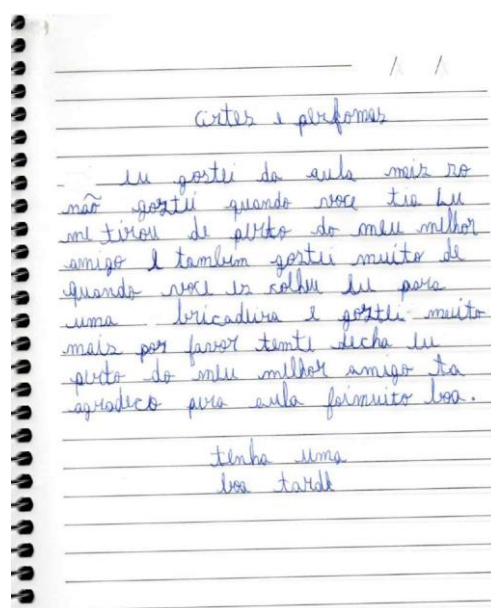 / /
artes e perfomes
- eu gostei da aula mais so
não gostei quando voce tia Lu
me tirou de perto do meu milhor
amigo e tambem gostei muito de
quando voce es colheu eu para
uma bricadeira e gostei muito
mais por favor tente decha eu
perto do meu milhor amigo ta
agradeco pera aula foimuito boa.
tenha uma
boa tarde